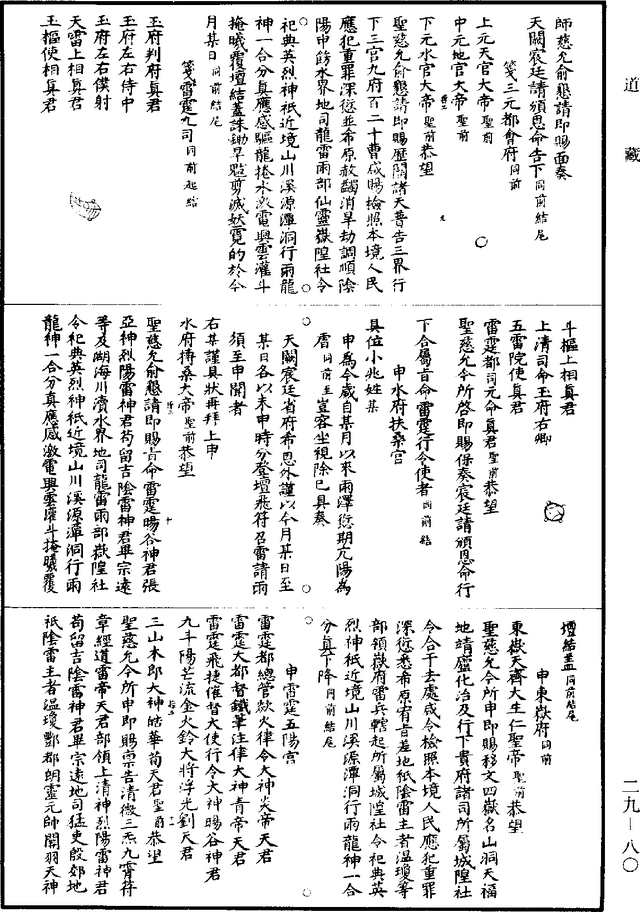 道藏
師慈允俞懇請即賜面奏
天闕宸廷請頒恩命告下同前結尾
箋三元都會府同前
上元天官大帝聖前
中元地官大帝聖前
下元水官大帝聖前恭望
聖慈允俞懇請即賜歷關諸天普告三界行
下三官九府百二十曹咸賜檢照本境人民
應犯重罪深愆並希原赦蠲消旱劫調順陰
陽申飭水界地司龍雷雨部仙靈嶽隍社令
祀典英烈神祇近境山川溪源潭洞行雨龍
神一合分真應感驅龍捲水激電興雲灌斗
掩曦覆壇結蓋誅鋤旱魃剪滅妖霓的於今
月某日同前結尾
箋雷霆九司同前起結
玉府判府真君
玉府左右侍中
玉府左右僕射
天雷上相真君
玉樞使相真君
斗樞上相真君
上清司命玉府右卿
五雷院使真君
雷霆都司元命真君聖前恭望
聖慈允令所啓即賜保奏宸廷請頒恩命行
下合屬旨命雷霆行令使者同前結
申水府扶桑宮
具位小兆姓某
申為今歲自某月以來雨澤愆期亢陽為
虐同前至豈容坐視除已具奏
天闕宸廷省府希恩外謹以今月某日至
某日各以未申時分登壇飛符召雷請雨
須至申聞者
右某謹具狀再拜上申
水府摶桑大帝聖前恭望
聖慈允俞懇請即賜旨命雷霆暘谷神君張
亞神烈陽雷神君苟留吉陰雷神君畢宗遠
等及湖海川瀆水界地司龍雷雨部嶽隍社
令祀典英烈神祇近境山川溪源潭洞行雨
龍神一合分真應感激電興雲灌斗掩曦覆
壇結蓋同前結尾
申東嶽府同前
東嶽天齊大生仁聖帝聖前恭望
聖慈允令所申即賜移文四嶽名山洞天福
地靖廬化治及行下貴府諸司所屬城隍社
令合干去處咸令檢照本境人民應犯重罪
深愆悉希原宥旨差地祇陰雷主者溫瓊等
部領嶽府雷兵轄起所屬城隍社令祀典英
烈神祇近境山川溪源潭洞行雨龍神一合
分真下降同前結尾
申雷霆五陽宮
雷霆都總管欻火律令大神炎帝天君
雷霆大都督鐵筆注律大神青帝天君
雷霆飛捷催督大使行令大神暘谷神君
九斗陽芒流金火鈴大將浮光劉天君
三山木郎大神皓華荀天君聖前恭望
聖慈允令所申即賜稟告清微三炁九霄符
章經道雷帝天君部領上清神烈陽雷神君
苟留吉陰雷神君畢宗遠地司猛吏殷郊地
祇陰雷主者溫瓊酆都朗靈元帥關羽天神
二九－八〇